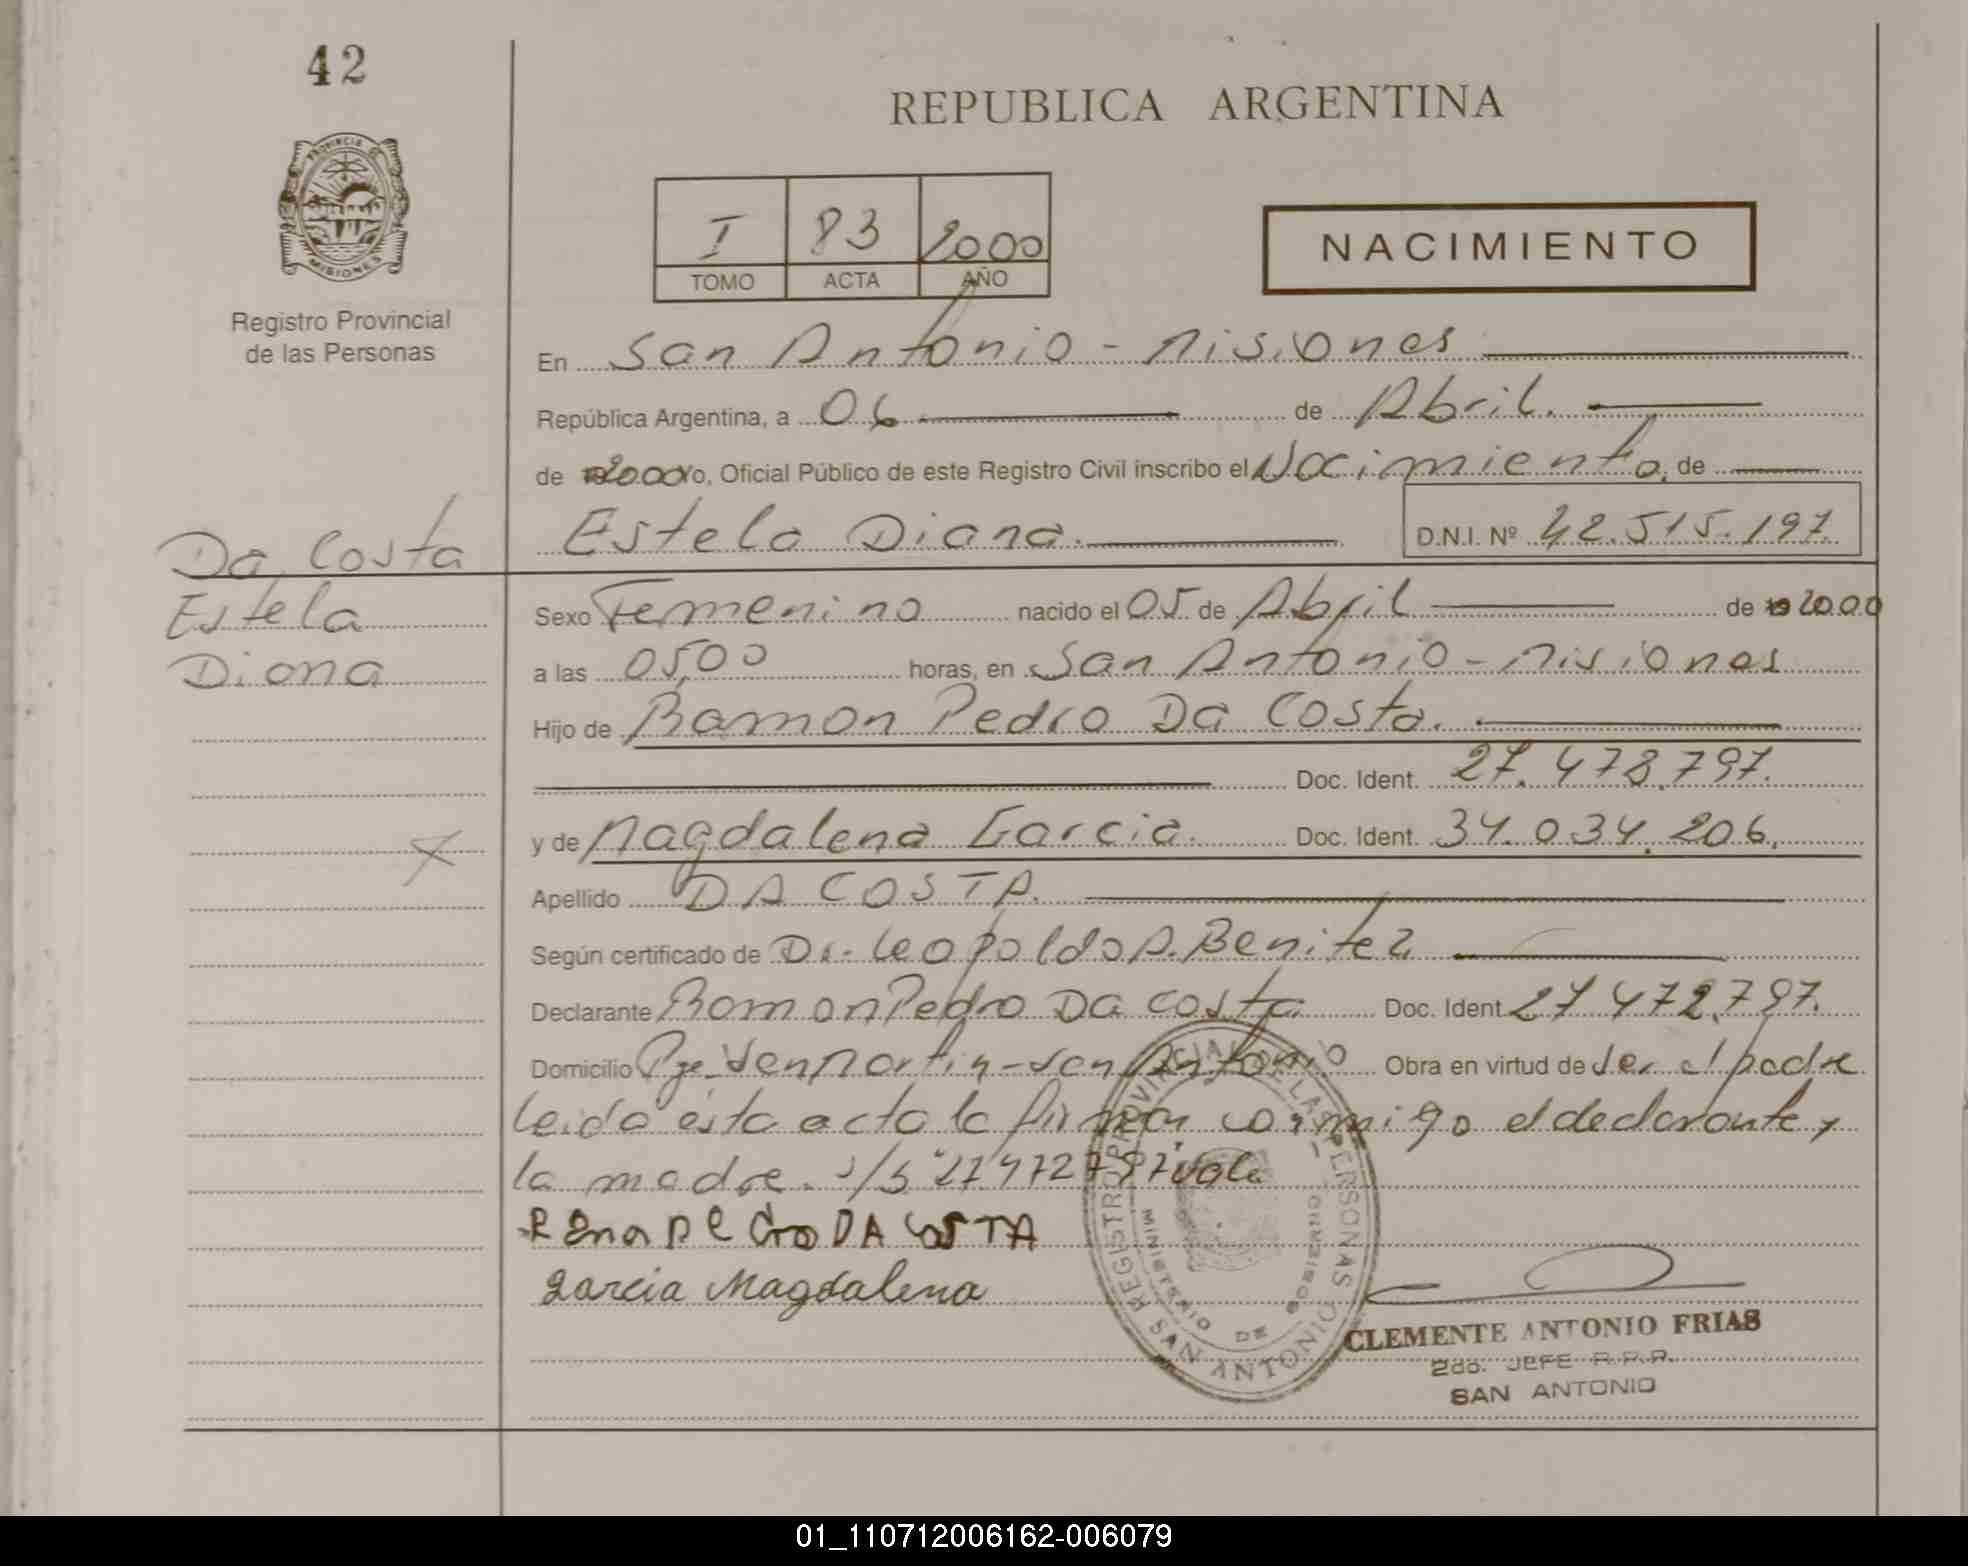 42
REPUBLICA ARGENTINA
PROVINCIA DE
MISIONES
Registro Provincial
de las Personas
I 83 2000
TOMO ACTA AÑO
NACIMIENTO
En San Antonio - Misiones
República Argentina, a 06 de Abril.
de 2000 Yo, Oficial Público de este Registro Civil inscribo el Nacimiento, de
Estela Diana. D.N.I. Nº 42.515.197.
Da Costa
Estela
Diana
Sexo Femenino nacido el 05 de Abril de 2000
a las 05,00 horas, en San Antonio - Misiones
Hijo de Ramon Pedro Da Costa.
Doc. Ident. 27.478.797.
y de Magdalena Garcia. Doc. Ident. 34.034.206.
Apellido DA COSTA.
Según certificado de Dr. Leopoldo A. Benitez
Declarante Ramon Pedro Da Costa Doc. Ident 27 472.797.
Domicilio Pje. San Martin - San Antonio Obra en virtud de ser el padre
Leida ésta acta la firman conmigo el declarante y
la madre. S/S 27 472 797 vale
DA COSTA
Garcia Magdalena
REGISTRO PROVINCIAL DE LAS PERSONAS
MINISTERIO DE GOBIERNO
SAN ANTONIO
CLEMENTE ANTONIO FRIAS
2do. JEFE R.P.P.
SAN ANTONIO
01_110712006162-006079